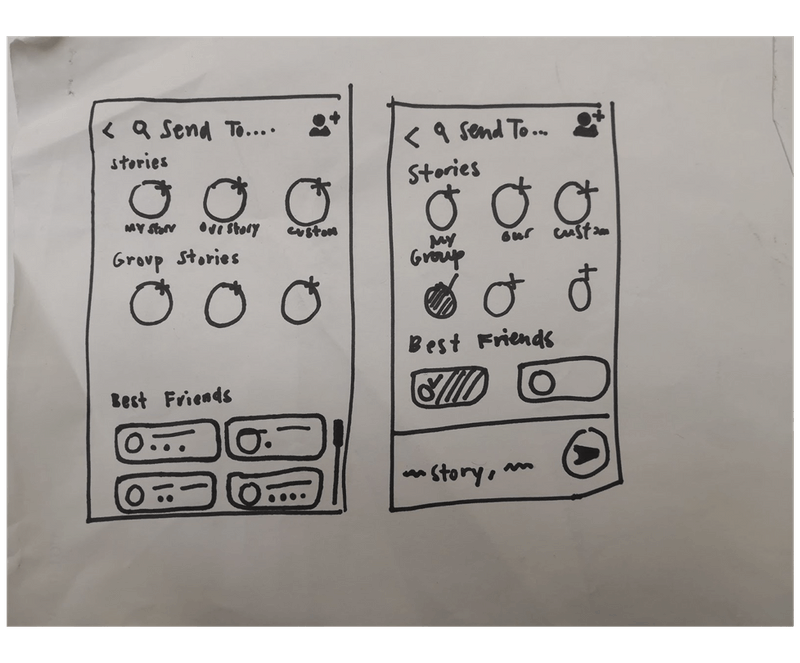 < Send To....
Stories
My Story Our Story Custom
Group Stories
Best Friends
< Send To...
Stories
My Our Custom
Group
Best Friends
Story,